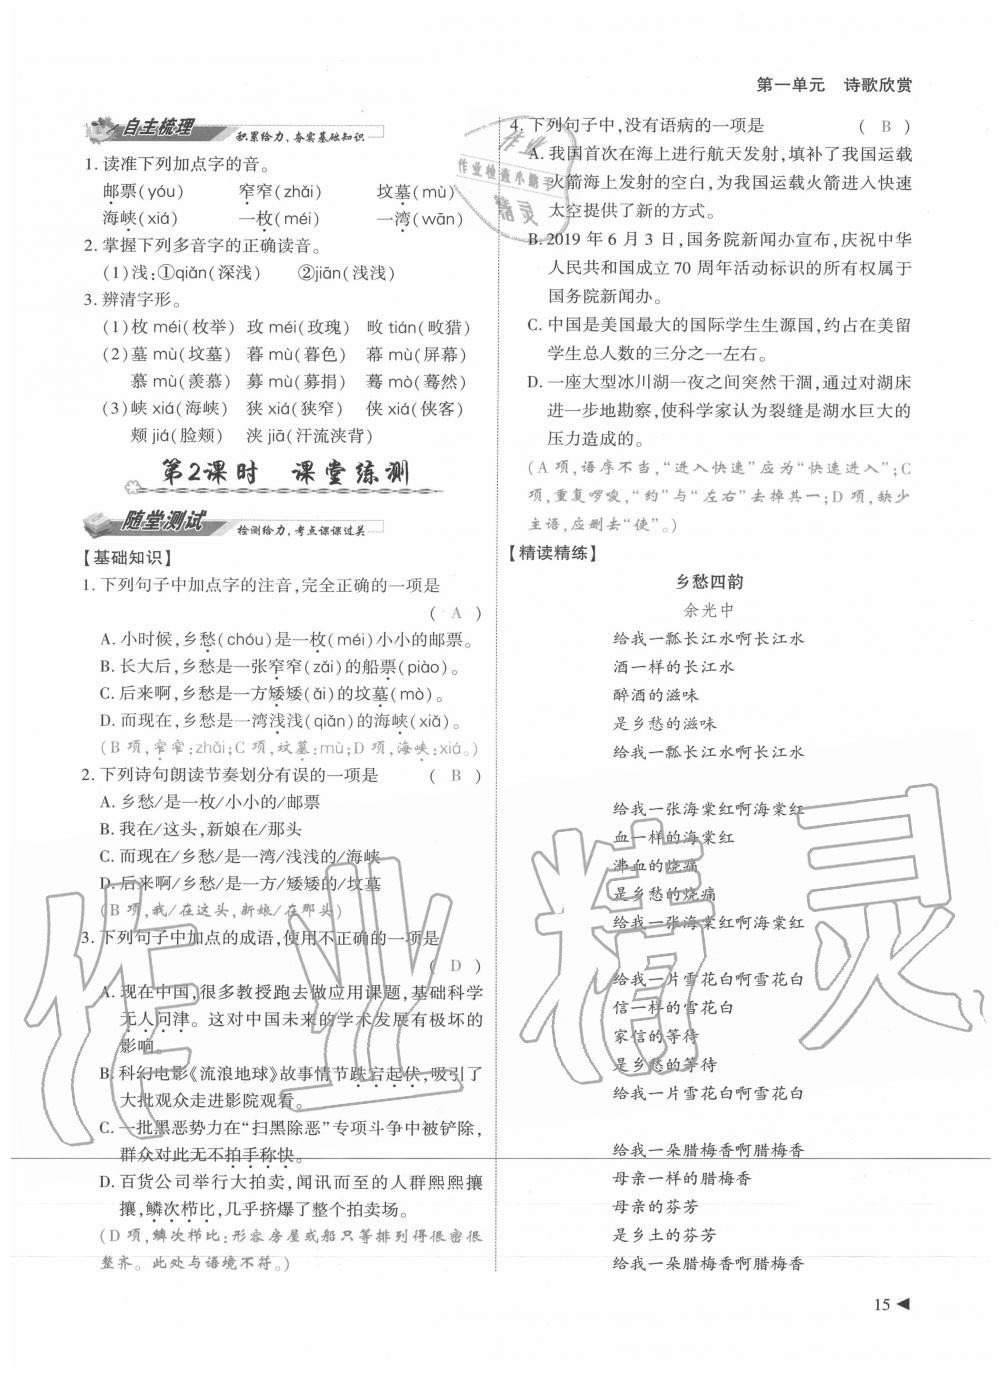 第一单元 诗歌欣赏
自主梳理 积累给力,夯实基础知识
1. 读准下列加点字的音。
邮票(yóu) 窄窄(zhǎi) 坟墓(mù)
海峡(xiá) 一枚(méi) 一湾(wān)
2. 掌握下列多音字的正确读音。
(1)浅:①qiǎn(深浅) ②jiān(浅浅)
3. 辨清字形。
(1)枚 méi(枚举) 玫 méi(玫瑰) 畋 tián(畋猎)
(2)墓 mù(坟墓) 暮 mù(暮色) 幕 mù(屏幕)
慕 mù(羡慕) 募 mù(募捐) 蓦 mò(蓦然)
(3)峡 xiá(海峡) 狭 xiá(狭窄) 侠 xiá(侠客)
颊 jiá(脸颊) 浃 jiā(汗流浃背)
第2课时 课堂练测
随堂测试 检测给力,考点课课过关
【基础知识】
1. 下列句子中加点字的注音,完全正确的一项是
( A )
A. 小时候,乡愁(chóu)是一枚(méi)小小的邮票。
B. 长大后,乡愁是一张窄窄(zǎi)的船票(piào)。
C. 后来啊,乡愁是一方矮矮(ǎi)的坟墓(mò)。
D. 而现在,乡愁是一湾浅浅(qiǎn)的海峡(xiǎ)。
(B 项,窄窄:zhǎi;C 项,坟墓:mù;D 项,海峡:xiá。)
2. 下列诗句朗读节奏划分有误的一项是 ( B )
A. 乡愁/是一枚/小小的/邮票
B. 我在/这头,新娘在/那头
C. 而现在/乡愁/是一湾/浅浅的/海峡
D. 后来啊/乡愁/是一方/矮矮的/坟墓
(B 项,我/在这头,新娘/在那头)
3. 下列句子中加点的成语,使用不正确的一项是
( D )
A. 现在中国,很多教授跑去做应用课题,基础科学
无人问津。这对中国未来的学术发展有极坏的
影响。
B. 科幻电影《流浪地球》故事情节跌宕起伏,吸引了
大批观众走进影院观看。
C. 一批黑恶势力在“扫黑除恶”专项斗争中被铲除,
群众对此无不拍手称快。
D. 百货公司举行大拍卖,闻讯而至的人群熙熙攘
攘,鳞次栉比,几乎挤爆了整个拍卖场。
(D 项,鳞次栉比:形容房屋或船只等排列得很密很
整齐。此处与语境不符。)
4. 下列句子中,没有语病的一项是 ( B )
A. 我国首次在海上进行航天发射,填补了我国运载
火箭海上发射的空白,为我国运载火箭进入快速
太空提供了新的方式。
B. 2019 年 6 月 3 日,国务院新闻办宣布,庆祝中华
人民共和国成立 70 周年活动标识的所有权属于
国务院新闻办。
C. 中国是美国最大的国际学生生源国,约占在美留
学生总人数的三分之一左右。
D. 一座大型冰川湖一夜之间突然干涸,通过对湖床
进一步地勘察,使科学家认为裂缝是湖水巨大的
压力造成的。
(A 项,语序不当,“进入快速”应为“快速进入”;C
项,重复啰唆,“约”与“左右”去掉其一;D 项,缺少
主语,应删去“使”。)
【精读精练】
乡愁四韵
余光中
给我一瓢长江水啊长江水
酒一样的长江水
醉酒的滋味
是乡愁的滋味
给我一瓢长江水啊长江水
给我一张海棠红啊海棠红
血一样的海棠红
沸血的烧痛
是乡愁的烧痛
给我一张海棠红啊海棠红
给我一片雪花白啊雪花白
信一样的雪花白
家信的等待
是乡愁的等待
给我一片雪花白啊雪花白
给我一朵腊梅香啊腊梅香
母亲一样的腊梅香
母亲的芬芳
是乡土的芬芳
给我一朵腊梅香啊腊梅香
15
作业
作业检查小助手
精灵
作业精灵